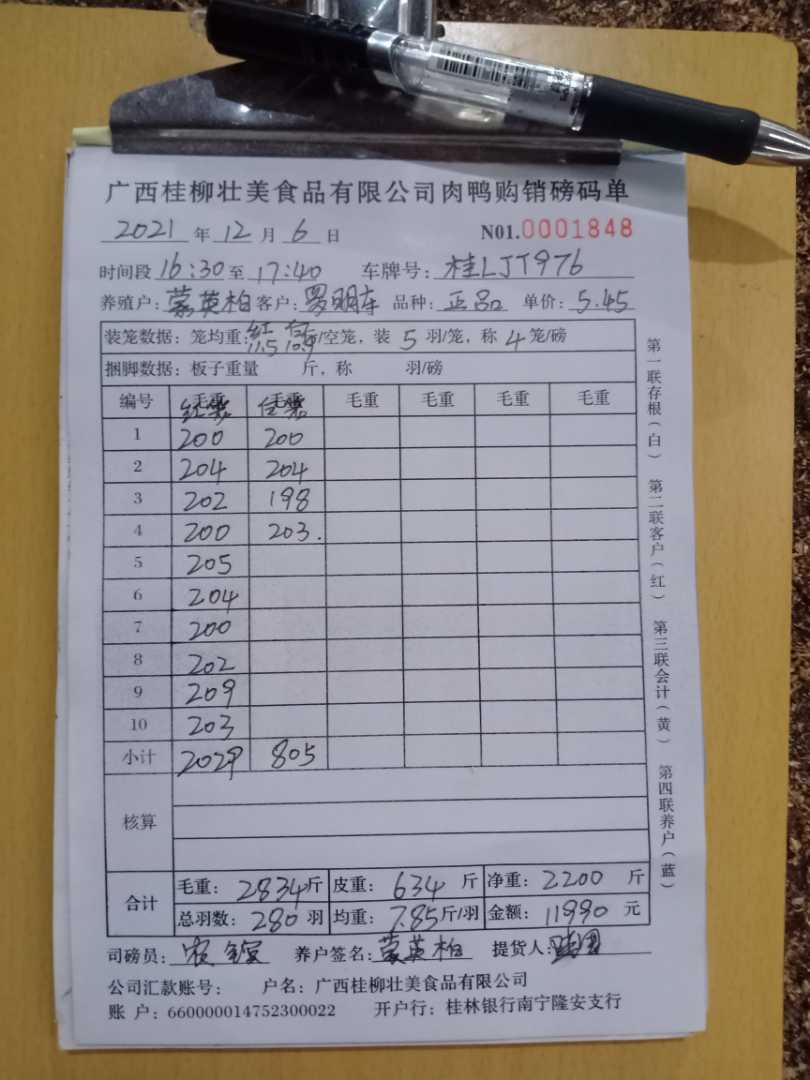 广西桂柳壮美食品有限公司肉鸭购销磅码单
2021 年 12 月 6 日 N01.0001848
时间段 16:30 至 17:40 车牌号: 桂LJT976
养殖户: 蒙英柏 客户: 罗明车 品种: 正品 单价: 5.45
装笼数据: 笼均重: 红11.5 白10.9 斤/空笼, 装 5 羽/笼, 称 4 笼/磅
捆脚数据: 板子重量 斤, 称 羽/磅
编号 毛重 毛重 毛重 毛重 毛重 毛重
红 白
1 200 200
2 204 204
3 202 198
4 200 203.
5 205
6 204
7 200
8 202
9 209
10 203
小计 2029 805
核算
合计 毛重: 2834 斤 皮重: 634 斤 净重: 2200 斤
总羽数: 280 羽 均重: 7.85 斤/羽 金额: 11990 元
司磅员: 养户签名: 蒙英柏 提货人:
公司汇款账号: 户名: 广西桂柳壮美食品有限公司
账 户: 660000014752300022 开户行: 桂林银行南宁隆安支行
第一联存根(白) 第二联客户(红) 第三联会计(黄) 第四联养户(蓝)